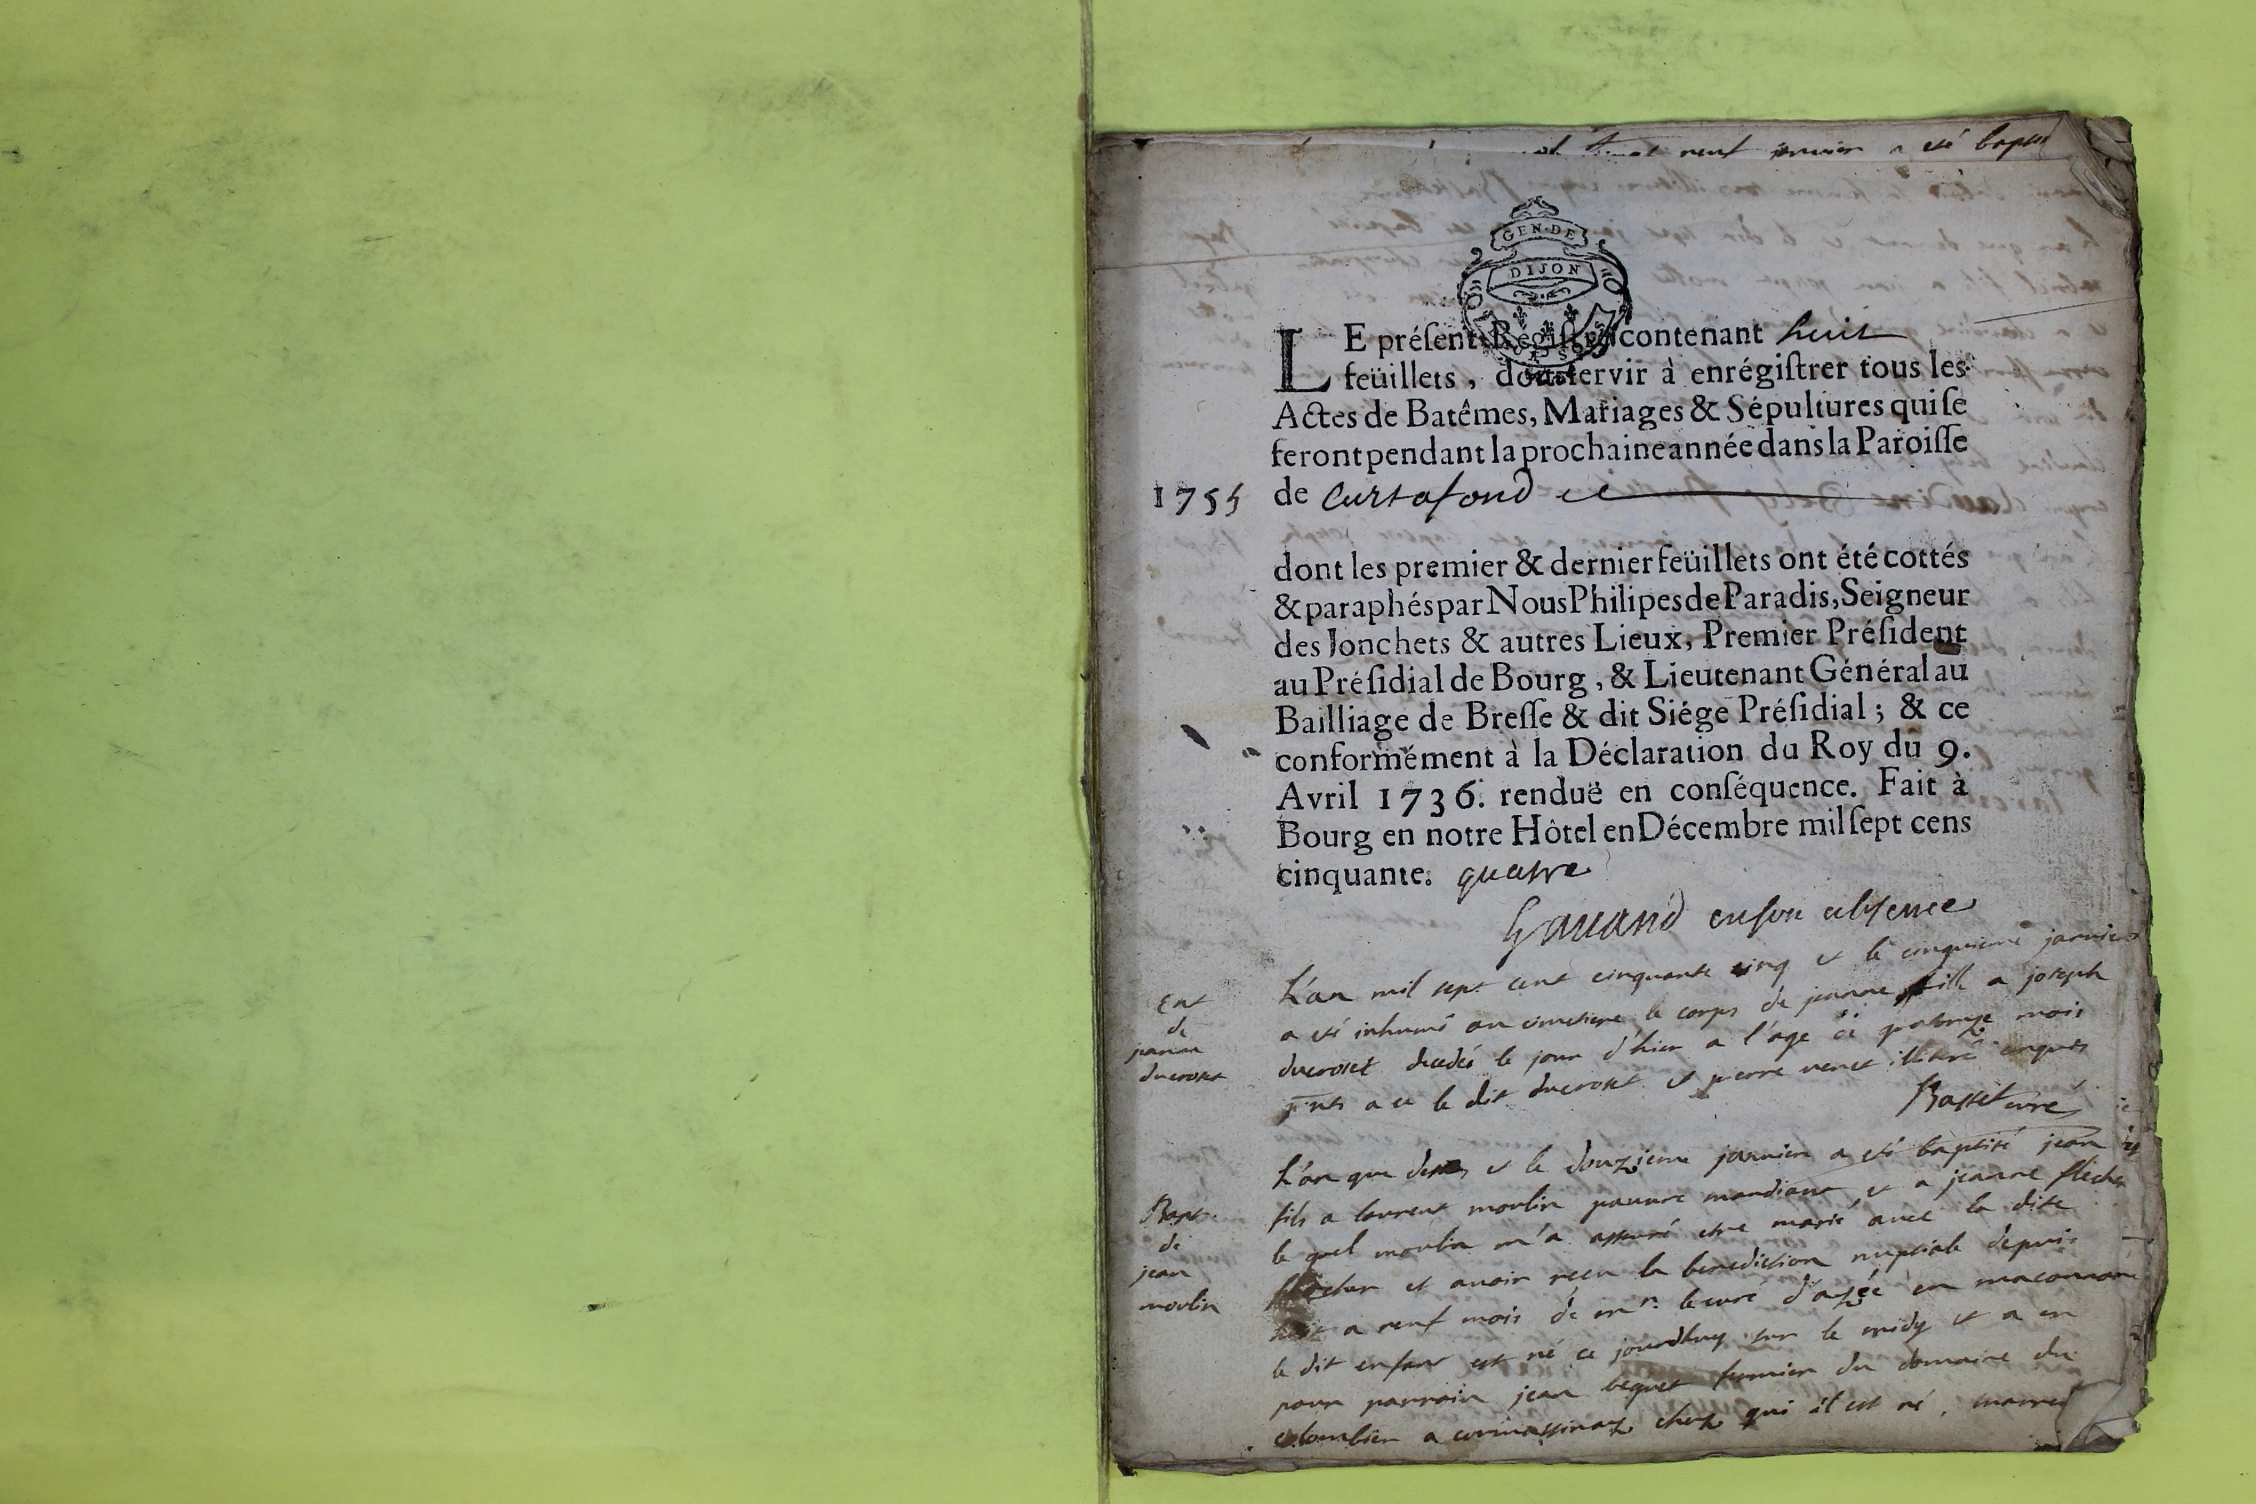 neuf janvier a eté bapti
GEN·DE
DIJON
LE préſent Régiſtre contenant huit
feüillets, doit ſervir à enrégiſtrer tous les
Actes de Batêmes, Mariages & Sépultures qui ſe
feront pendant la prochaine année dans la Paroiſſe
1755 de Curtafond
dont les premier & dernier feüillets ont été cottés
& paraphés par Nous Philipes de Paradis, Seigneur
des Jonchets & autres Lieux, Premier Préſident
au Préſidial de Bourg, & Lieutenant Général au
Bailliage de Breſſe & dit Siége Préſidial ; & ce
conformément à la Déclaration du Roy du 9.
Avril 1736. renduë en conſéquence. Fait à
Bourg en notre Hôtel en Décembre mil ſept cens
cinquante. quatre
en son absence
Ent
de
jeanne
ducroset
L'an mil sept cent cinquante cinq et le cinquieme janvier
a eté inhumé au cimetiere le corps de jeanne fille a joseph
ducroset decedée le jour d'hier a l'age de quatorze mois
pnts a ce le dit ducroset et pierre venet illiteré enquis
Basset curé
Bapt
de
jean
moulin
L'an que dessus et le douzieme janvier a eté baptisé jean
fils a laurent moulin pauvre mandiant et a jeanne flecher
le quel moulin m'a assuré etre marié avec la dite
flecher et avoir reçu la benediction nuptiale depuis
huit a neuf mois de mr. le curé d'azée en maconnais
le dit enfant est né ce jourdhuy sur le midy et a eu
pour parrain jean bequet fermier du domaine du
colombier a chez qui il est né,